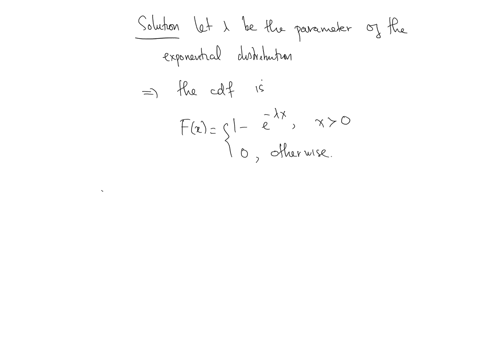 Solution let λ be the parameter of the
exponential distribution
⇒ the cdf is
F(x) = { 1 - e^{-λx}, x > 0
0, otherwise.